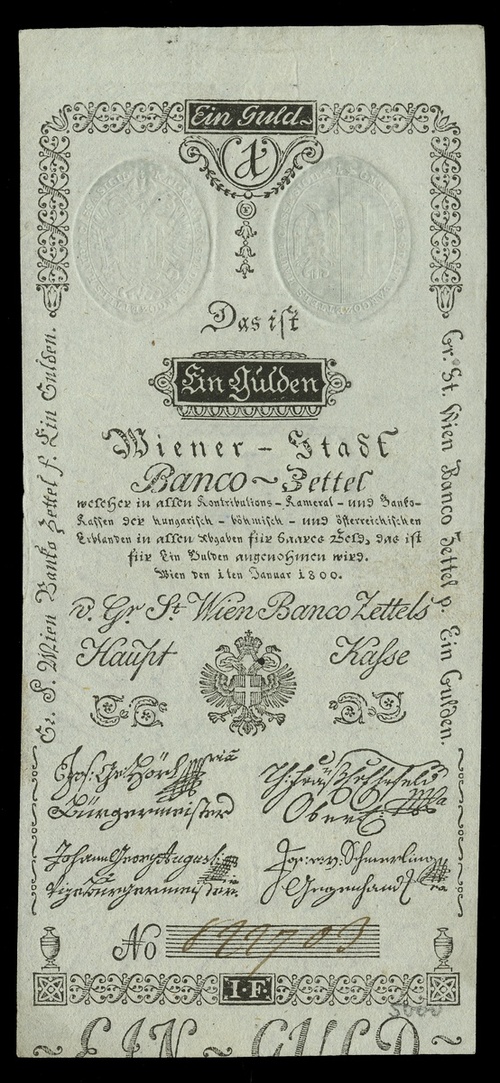 Ein Guld~
1
Das ist
Ein Gulden
Wiener - Stadt
Banco ~ Zettel
welcher in allen Kontributions - Kameral - und Banko-
Kassen der hungarisch - böhmisch - und österreichischen
Erblanden in allen Abgaben für baares Geld, das ist
für Ein Gulden angenohmen wird.
Wien den 1ten Januar 1800.
v. Gr. St. Wien Banco Zettels
Haupt Kasse
Gr. S. Wien Banko Zettel f. Ein Gulden.
Gr. St. Wien Banco Zettel p. Ein Gulden.
Jos: Ge: Hörl
Bürgermeister
Ober
Johann Georg Augusti
Vizebürgermeister
Jos: v. Schmerling
Gegenhand
No
I·F·
5000
~ EIN ~ GULD ~